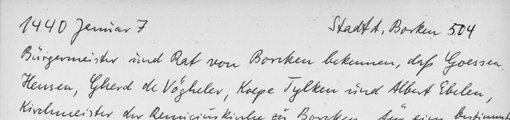 1440 Januar 7 Stadt A, Borken 504
Bürgermeister und Rat von Borcken bekennen, daß Goessen
Hensen, Gherd de Vögheler, Koepe Tylken und Albert Ebelen,
Kirchmeister der Remigiuskirche zu Borcken, für eine bestimmte